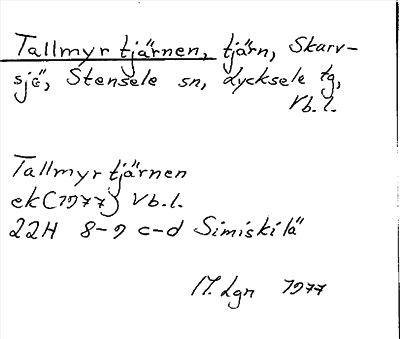 Tallmyrtjärnen, tjärn, Skarv-
sjö, Stensele sn, Lycksele tg,
Vb.l.
Tallmyrtjärnen
ek (1977) Vb.l.
22H 8-9 c-d Simiskilä
M. Lgn 1977